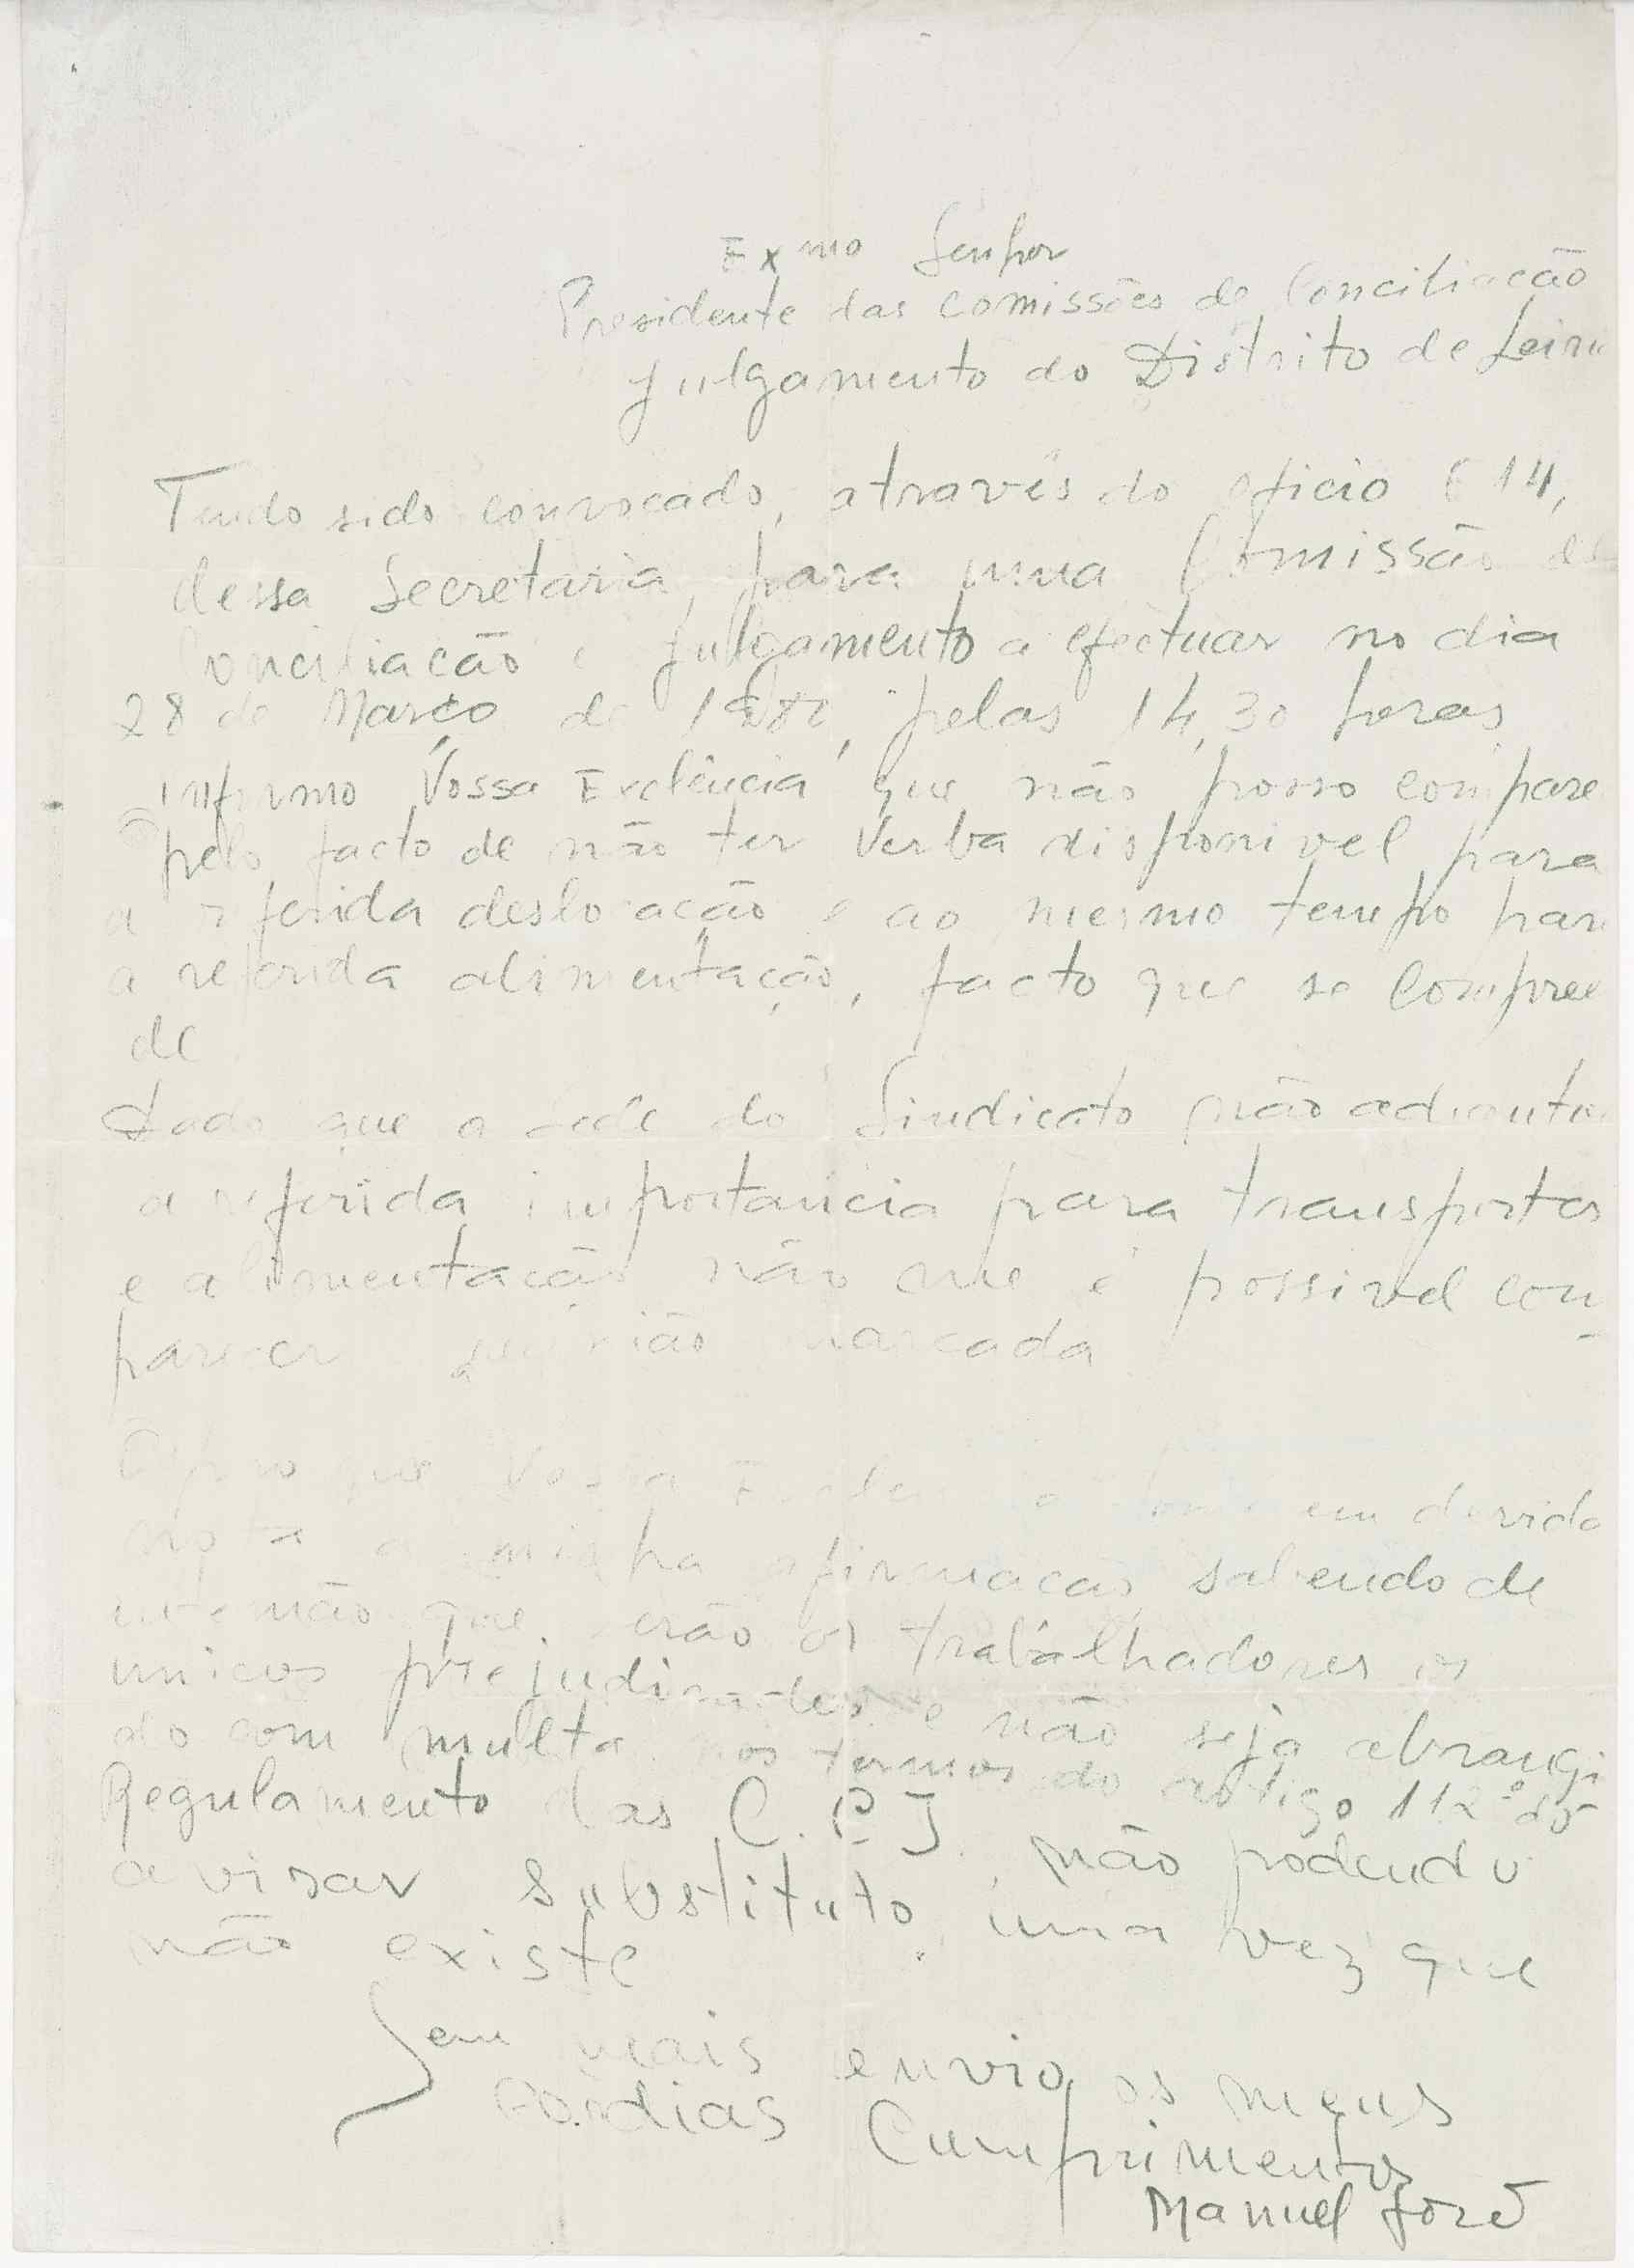 Exmo Senhor
Presidente das Comissões de Conciliação
Julgamento do Distrito de Leiria
Tendo sido convocado, através do oficio 614,
dessa Secretaria, para uma Comissão de
Conciliação e Julgamento a efectuar no dia
28 de Março de 1980, pelas 14,30 horas,
informo Vossa Exclência que não posso compare
pelo facto de não ter Verba disponivel para
a referida deslocação e ao mesmo tempo para
a referida alimentação, facto que se compreen
de
Dado que a sede do Sindicato não adianta
a referida importancia para transportes
e alimentação não me é possivel com-
parecer reunião marcada
que Vossa em devida
nota a minha afirmacão, sabendo de
antemão que serão os trabalhadores os
unicos prejudicados e não seja abrangi
do com multa nos termos do artigo 112º do
Regulamento das C.C.J., não podendo
avisar substituto, uma vez que
não existe
Sem mais envio os meus
cordias Cumprimentos
Manuel José